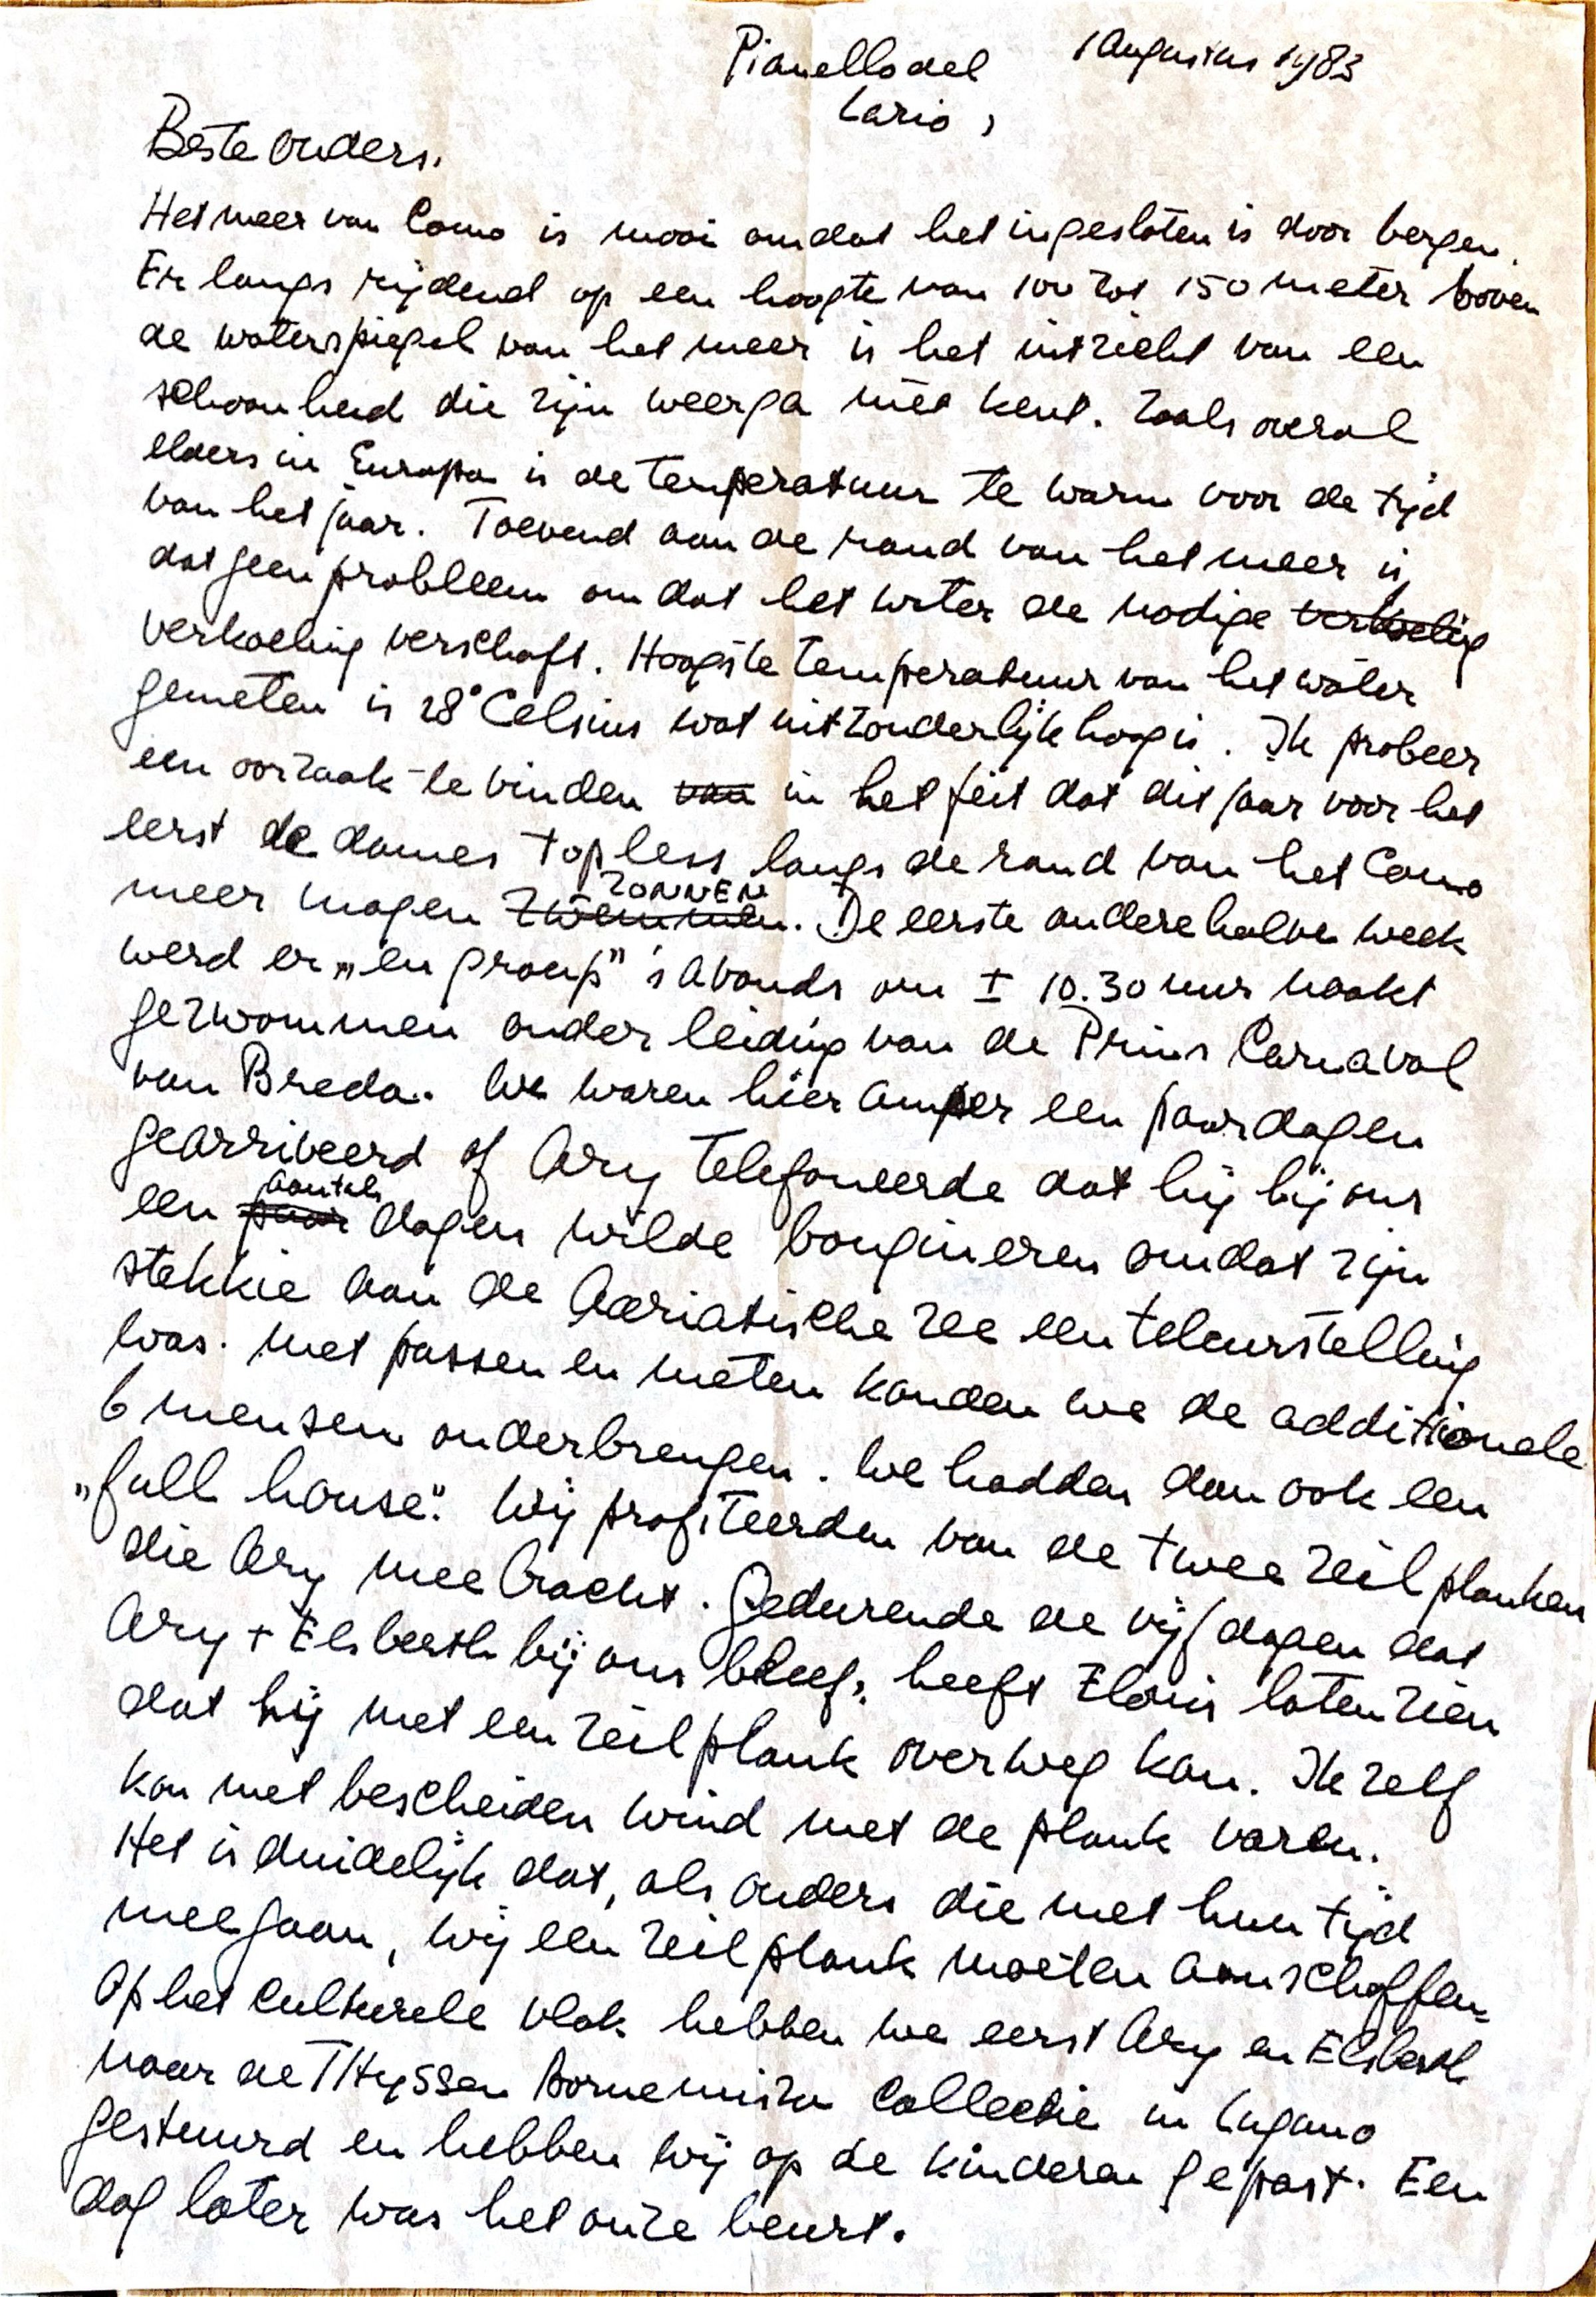 Pianello del 1 Augustus 1983
Lario,
Beste ouders.
Het meer van Como is mooi omdat het ingesloten is door bergen.
Er langs rijdend op een hoogte van 100 tot 150 meter boven
de waterspiegel van het meer is het uitzicht van een
schoonheid die zijn weerga niet kent. Zoals overal
elders in Europa is de temperatuur te warm voor de tijd
van het jaar. Toevend aan de rand van het meer is
dat geen probleem omdat het water de nodige verkoeling
verkoeling verschaft. Hoogste temperatuur van het water
gemeten is 28° Celsius wat uitzonderlijk hoog is. Ik probeer
een oorzaak te vinden van in het feit dat dit jaar voor het
eerst de dames topless langs de rand van het Como
meer mogen zwemmen ZONNEN. De eerste anderehalve week
werd er „en group” 's avonds om ± 10.30 uur naakt
gezwommen onder leiding van de Prins Carnaval
van Breda. We waren hier amper een paar dagen
gearriveerd of Ary telefoneerde dat hij bij ons
een paar aantal dagen wilde bougineren omdat zijn
stekkie aan de Adriatische zee een teleurstelling
was. Met passen en meten konden we de additionele
6 mensen onderbrengen. We hadden dan ook een
„full house”. Wij profiteerden van de twee zeilplanken
die Ary mee bracht. Gedurende de vijf dagen dat
Ary + Elsbeth bij ons bleef, heeft Floris laten zien
dat hij met een zeilplank overweg kan. Ik zelf
kan met bescheiden wind met de plank varen.
Het is duidelijk dat, als ouders die met hun tijd
meegaan, wij een zeilplank moeten aanschaffen.
Op het culturele vlak hebben we eerst Ary en Elsbeth
naar de THyssen Bornemisza Collectie in Lugano
gestuurd en hebben wij op de kinderen gepast. Een
dag later was het onze beurt.